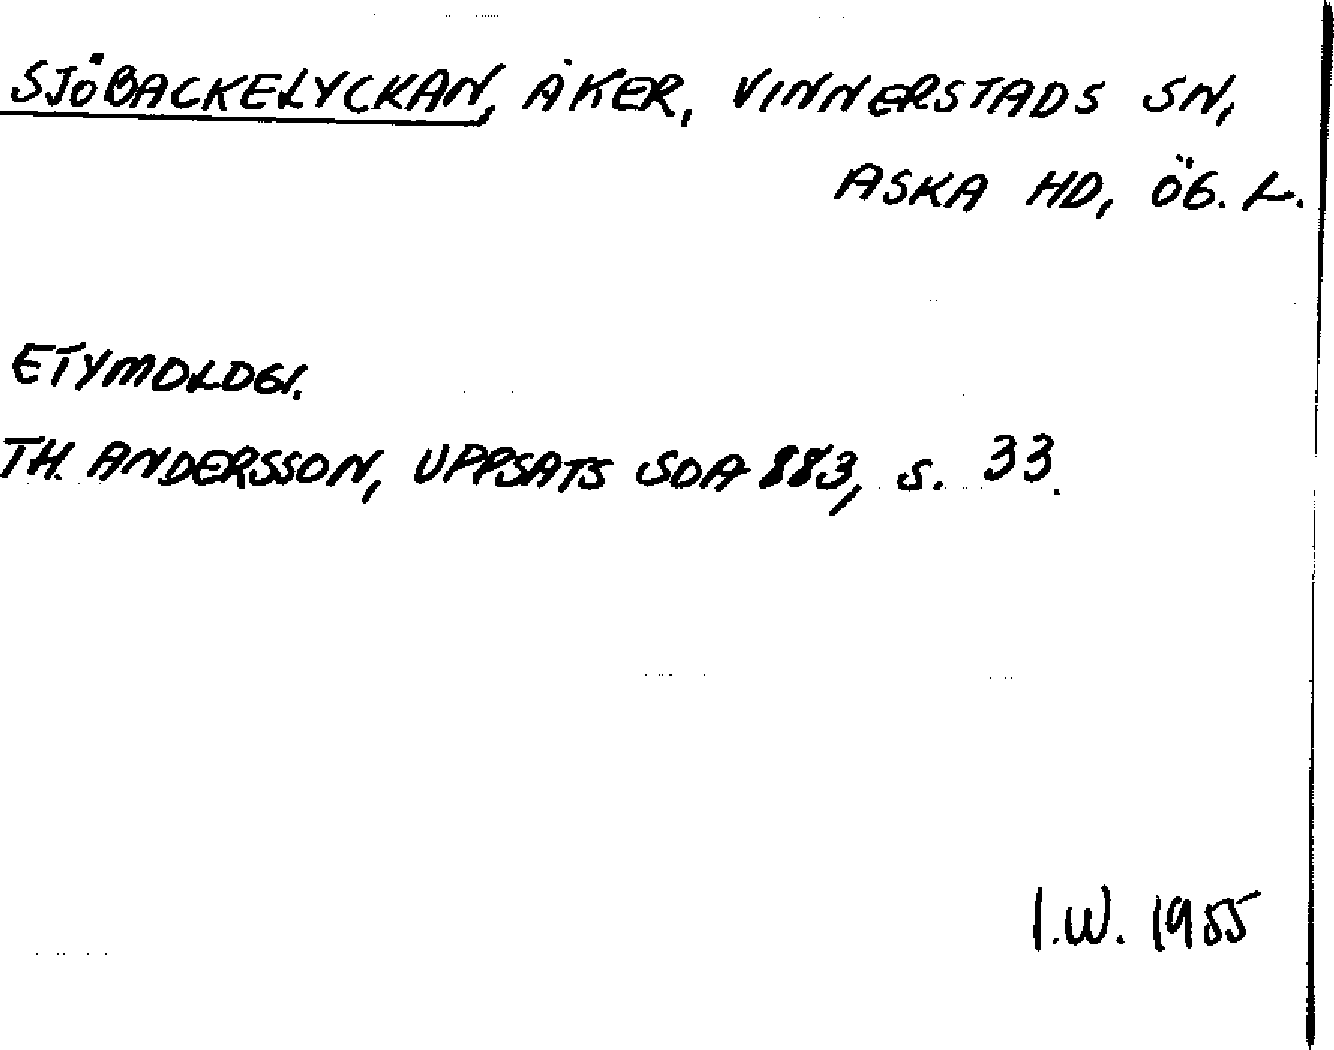 SJÖBACKELYCKAN, ÅKER, VINNERSTADS SN,
ASKA HD, ÖG. L.
ETYMOLOGI.
TH. ANDERSSON, UPPSATS SOA 883, S. 33.
I.W. 1955